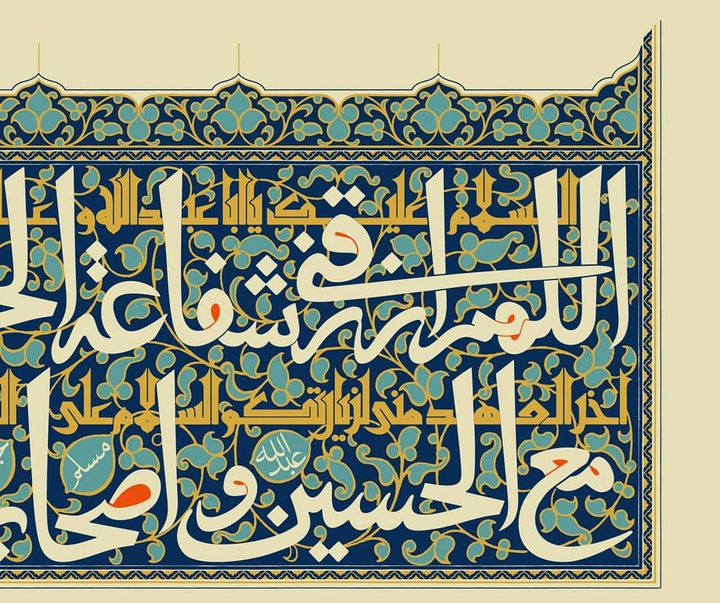 السلام علیک یا ابا عبدالله و
اللهم ارزقنی شفاعة
اخر العهد منی لزیارتک و السلام علی
مع الحسین و اصحا
عبدالله
مسلم